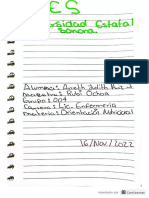 ES
Universidad Estatal
Sonora.
Alumna: Aneth Judith Ruiz
Maestra: Rubi Ochoa
Grupo: 004
Carrera: Lic. Enfermeria
Materia: Orientación Nutricional
16/Nov/2022
CamScanner